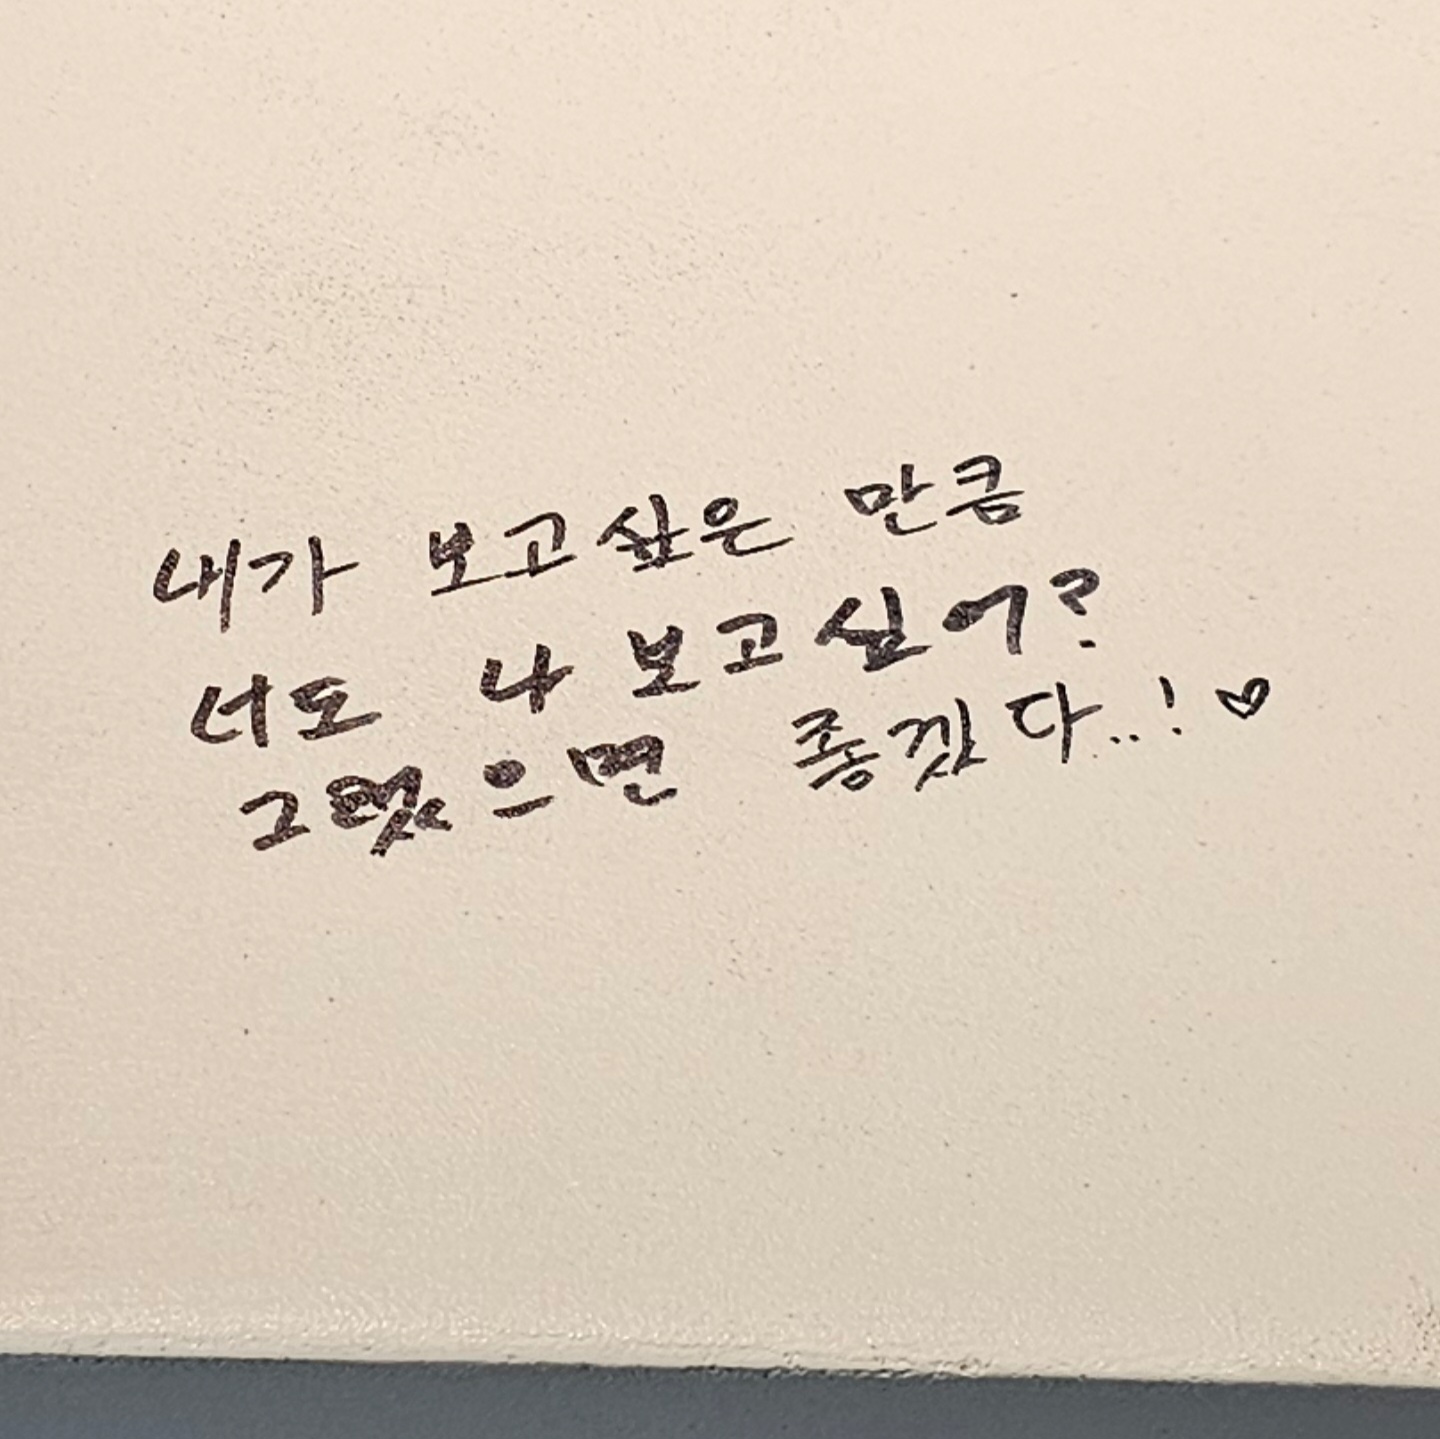 내가 보고싶은 만큼
너도 나 보고싶어?
그랬으면 좋겠다..! ♡